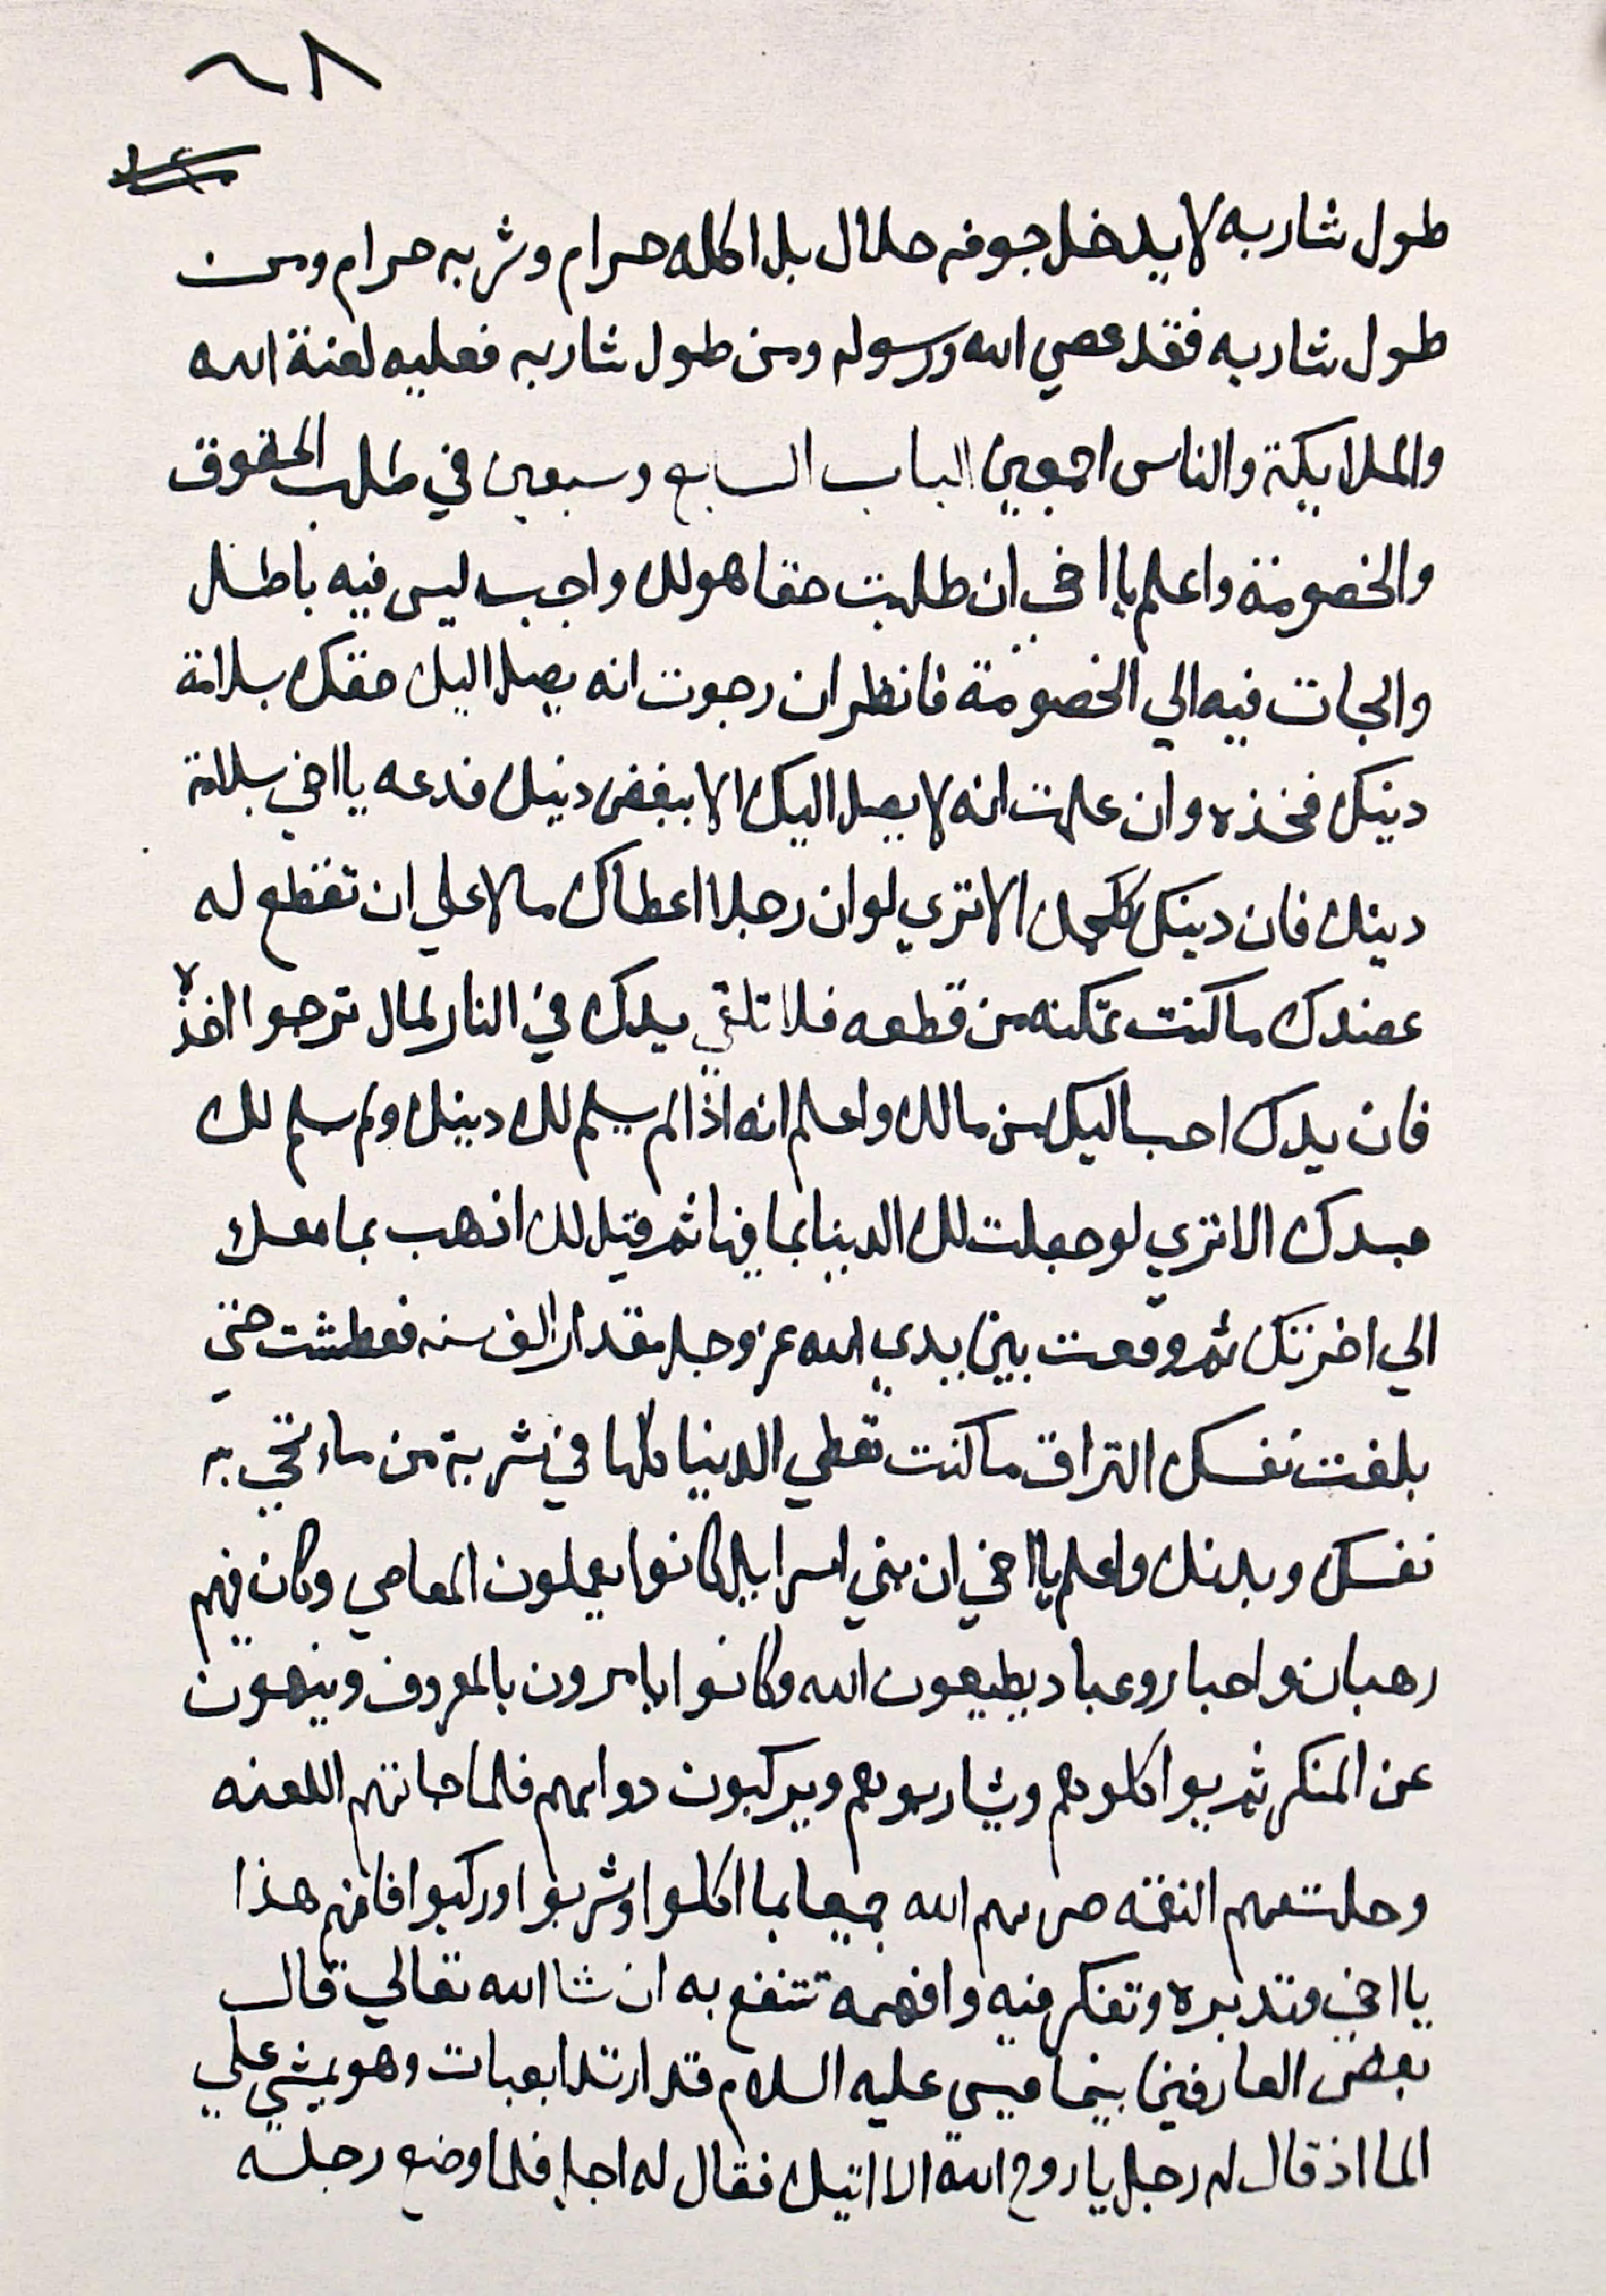 ٦٨
طول شاربه لا يدخل جوفه حلال بل اكله حرام وشربه حرام ومن
طول شاربه فقد عصي الله ورسوله ومن طول شاربه فعليه لعنة الله
والملايكة والناس اجمعين الباب السابع وسبعين في طلب الحقوق
والخصومة واعلم يا اخي ان طلبت حقا هو لك واجب ليس فيه باطل
والجات فيه الي الخصومة فانظر ان رجوت انه يصل اليك حقك بسلامة
دينك فخذه وان علمت انه لا يصل اليك الا ببغض دينك فدعه يا اخي بسلامة
دينك فان دينك كلحمك الا تري لو ان رجلا اعطاك مالا علي ان تقطع له
عضدك ما كنت تمكنه من قطعه فلا تلقي يدك في النار لمال ترجوا اخذه
فان يدك احب اليك من مالك واعلم انه اذا لم يسلم لك دينك ولم يسلم لك
جسدك الا تري لو جعلت لك الدينا بما فيها ثم قيل لك اذهب بما معك
الي اخرتك ثم وقفت بين يدي الله عز وجل مقدار الف سنه فعطشت حتي
بلغت نفسك التراق ما كنت تعطي الدنيا كلها في شربة من ماء تحي به
نفسك وبدنك واعلم يا اخي ان بني اسراييل كانوا يعملون المعاصي وكان فيهم
رهبان واحبار وعباد يطيعون الله وكانوا يامرون بالمعروف وينهون
عن المنكر ثم يواكلوهم ويشاربوهم ويركبون دوابهم فلما جاتهم اللعنه
وحلت بهم النقمه ضربهم الله جميعا بما اكلوا وشربوا وركبوا فافهم هذا
يا اخي وتدبره وتفكر فيه وافهمه تنتفع به ان شا الله تعالي قال
بعض العارفين بينما عيسي عليه السلام قد ارتدا بعبات وهو يمشي علي
الما اذ قال له رجل يا روح الله الا اتيك فقال له اجل فلما وضع رجله